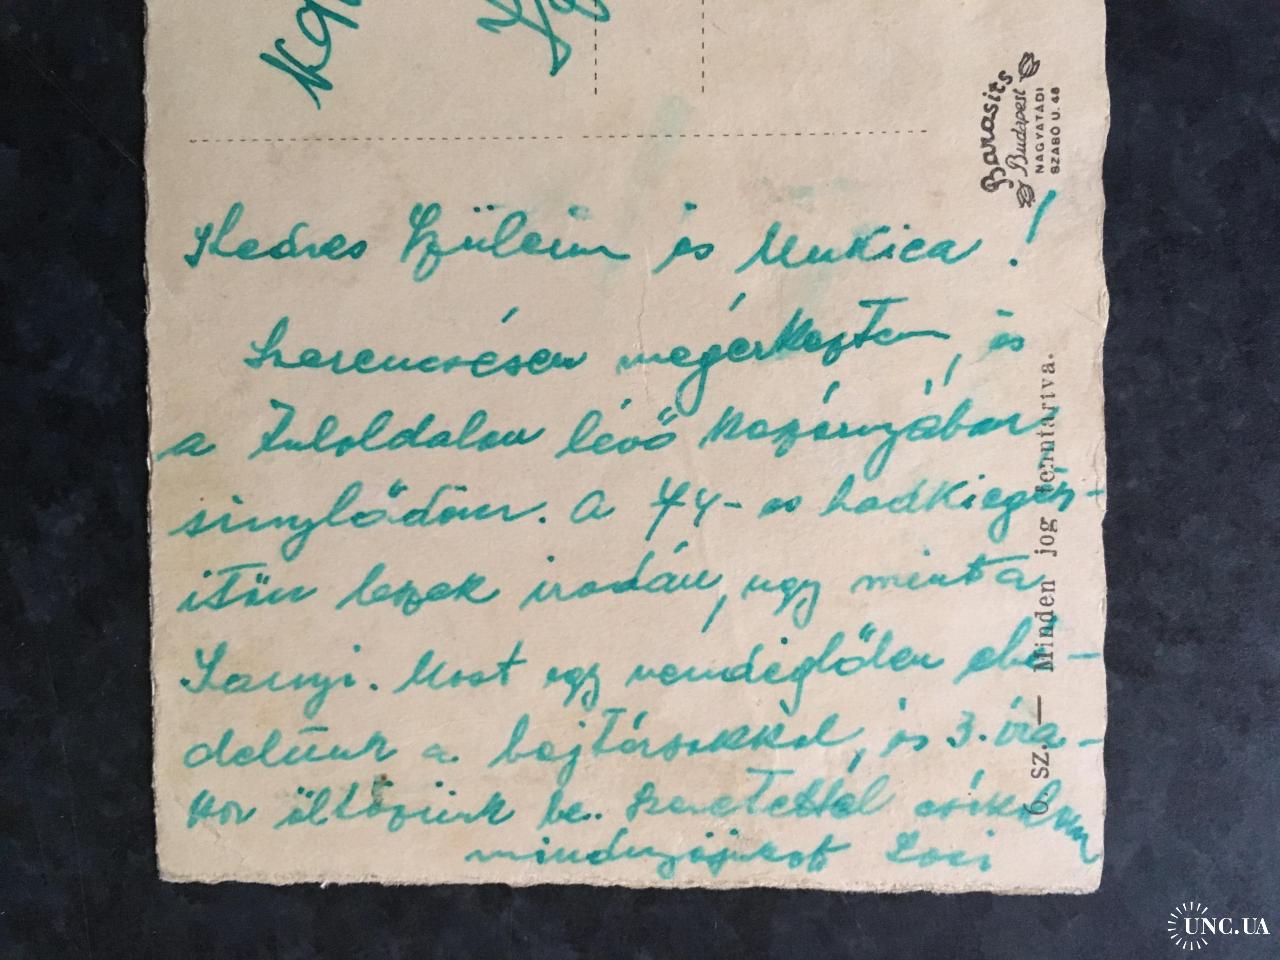 Kedves Szüleim és Mukica!
Szerencsésen megérkeztem, és
a túloldalon lévő kaszárnyában
sinylődöm. A 44-es hadkiegész-
itőn leszek irodán, ugy mint a
Most egy vendéglőben ebé-
delünk a bajtársakkal, és 3. óra-
kor öltözünk be. Szeretettel csókolom
mindnyájukat Laci
Barasits
Budapest
NAGYATÁDI
SZABÓ U. 48
6. SZ. — Minden jog fenntartva.
UNC.UA